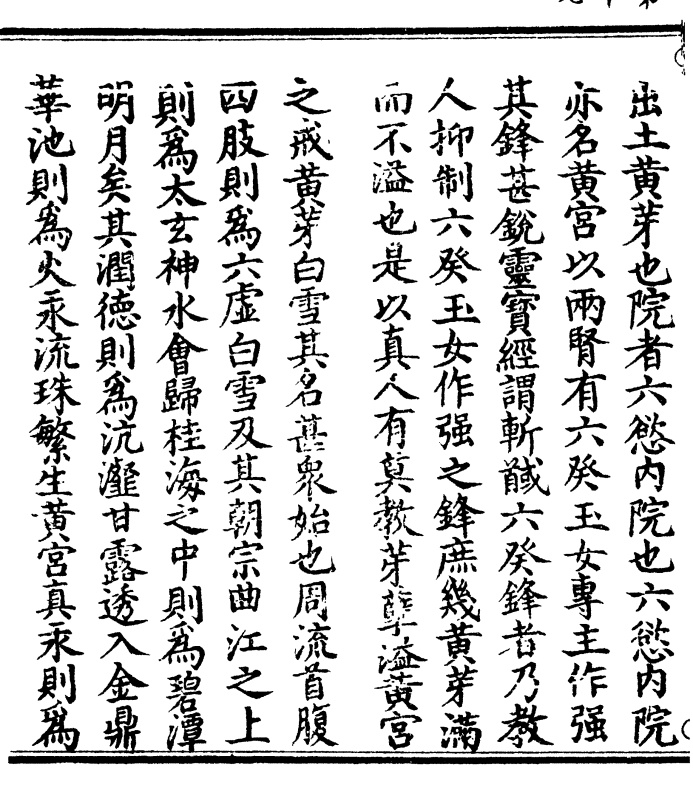 出土黄芽也院者六慾内院也六慾内院
亦名黄宮以兩腎有六癸玉女專主作强
其鋒甚銳靈寶經謂斬馘六癸鋒者乃教
人抑制六癸玉女作强之鋒庶幾黄芽滿
而不溢也是以真人有莫教芽孽溢黄宮
之戒黄芽白雪其名甚衆始也周流首腹
四肢則爲六虛白雪及其朝宗曲江之上
則爲太玄神水會歸桂海之中則爲碧潭
明月矣其潤德則爲沆瀣甘露透入金鼎
華池則爲火汞流珠繁生黄宮真汞則爲